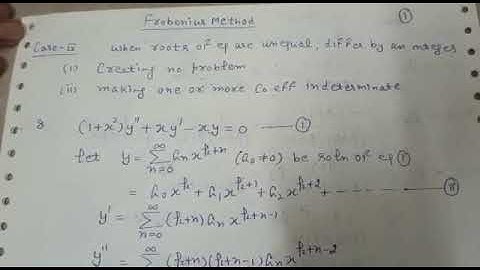 Frobenius Method ①
Case-IV When roots of eq are unequal, differ by an integer
(i) Creating no problem
(ii) making one or more Co eff indeterminate
(1+x²)y″ + xy′ - xy = 0 —— ①
let y = Σ_{n=0}^{∞} a_n x^{k+n} (a₀≠0) be soln of eq ①
= a₀x^k + a₁x^{k+1} + a₂x^{k+2} + - - - - - - - ②
y′ = Σ_{n=0}^{∞} (k+n) a_n x^{k+n-1}
y″ = Σ^{∞} (k+n)(k+n-1) a_n x^{k+n-2}